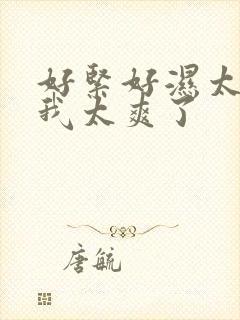 好紧好湿太
我太爽了
唐毓